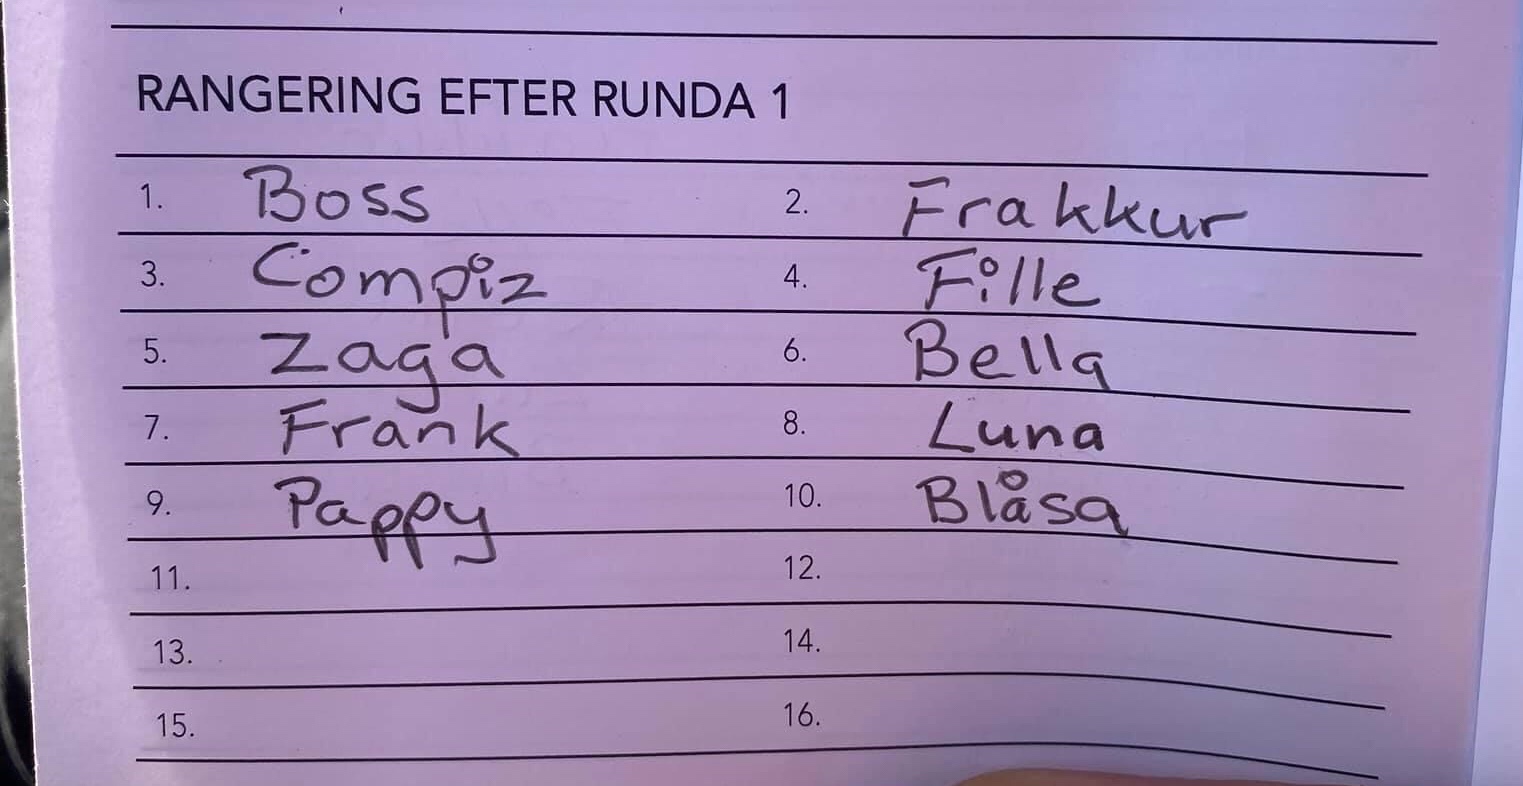 RANGERING EFTER RUNDA 1
1. Boss 2. Frakkur
3. Compiz 4. Fille
5. Zaga 6. Bella
7. Frank 8. Luna
9. Pappy 10. Blåsa
11. 12.
13. 14.
15. 16.